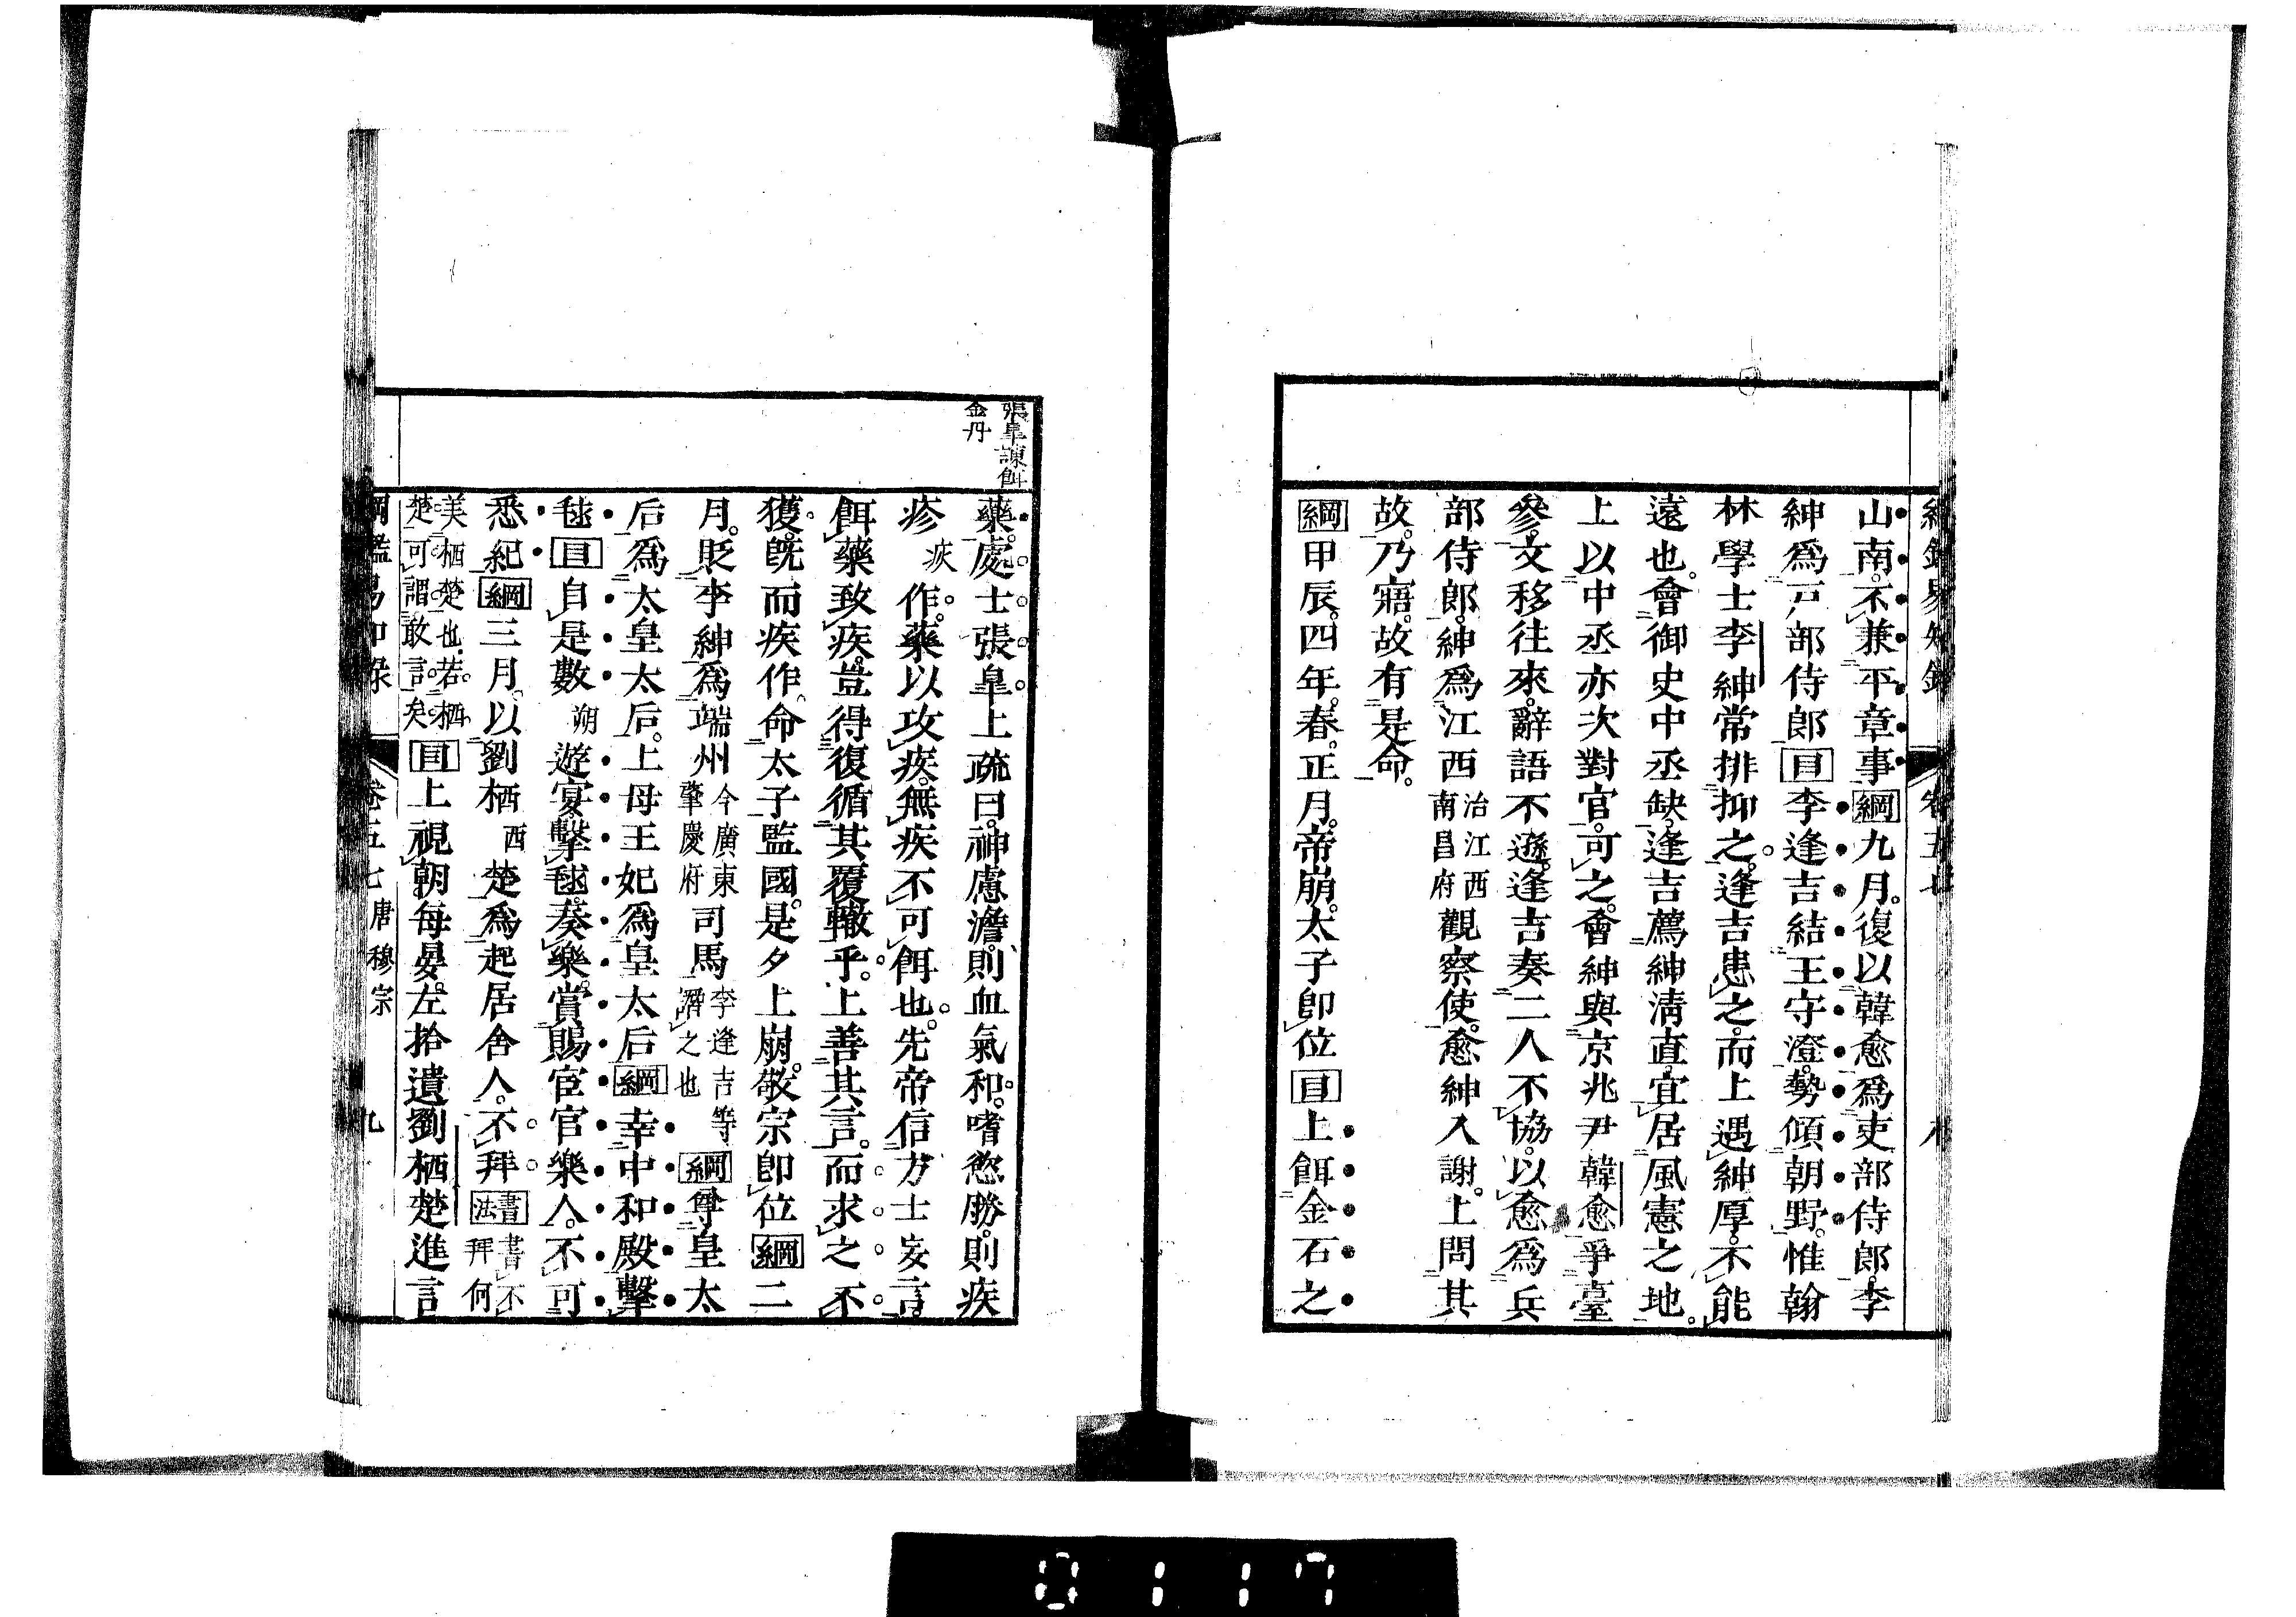 綱鑑易知錄 卷五七 八
山南。不兼平章事綱九月。復以韓愈爲吏部侍郎。李
紳爲戸部侍郎目李逢吉結王守澄。勢傾朝野。惟翰
林學士李紳常排抑之。逢吉患之。而上遇紳厚。不能
遠也。會御史中丞缺。逢吉薦紳淸直。宜居風憲之地。
上以中丞亦次對官。可之。會紳與京兆尹韓愈爭臺
參。文移往來。辭語不遜。逢吉奏二人不協。以愈爲兵
部侍郎。紳爲江西治江西南昌府觀察使。愈紳入謝。上問其
故。乃寤。故有是命。
綱甲辰。四年。春。正月。帝崩。太子卽位目上餌金石之
張皐諫餌
金丹
藥。處士張皐上疏曰。神慮澹。則血氣和。嗜慾勝。則疾
疹疢作。藥以攻疾。無疾不可餌也。先帝信方士妄言。
餌藥致疾。豈得復循其覆轍乎。上善其言。而求之不
獲。旣而疾作。命太子監國。是夕上崩。敬宗卽位綱二
月。貶李紳爲端州今廣東肇慶府司馬李逢吉等譖之也綱尊皇太
后爲太皇太后。上母王妃爲皇太后綱幸中和殿擊
毬目自是數朔遊宴。擊毬。奏樂。賞賜宦官樂人。不可
悉紀綱三月。以劉栖西楚爲起居舍人。不拜書法書不拜何
美栖楚也。若栖楚。可謂敢言矣目上視朝每晏。左拾遺劉栖楚進言
綱鑑易知錄 卷五七 唐穆宗 九
0117